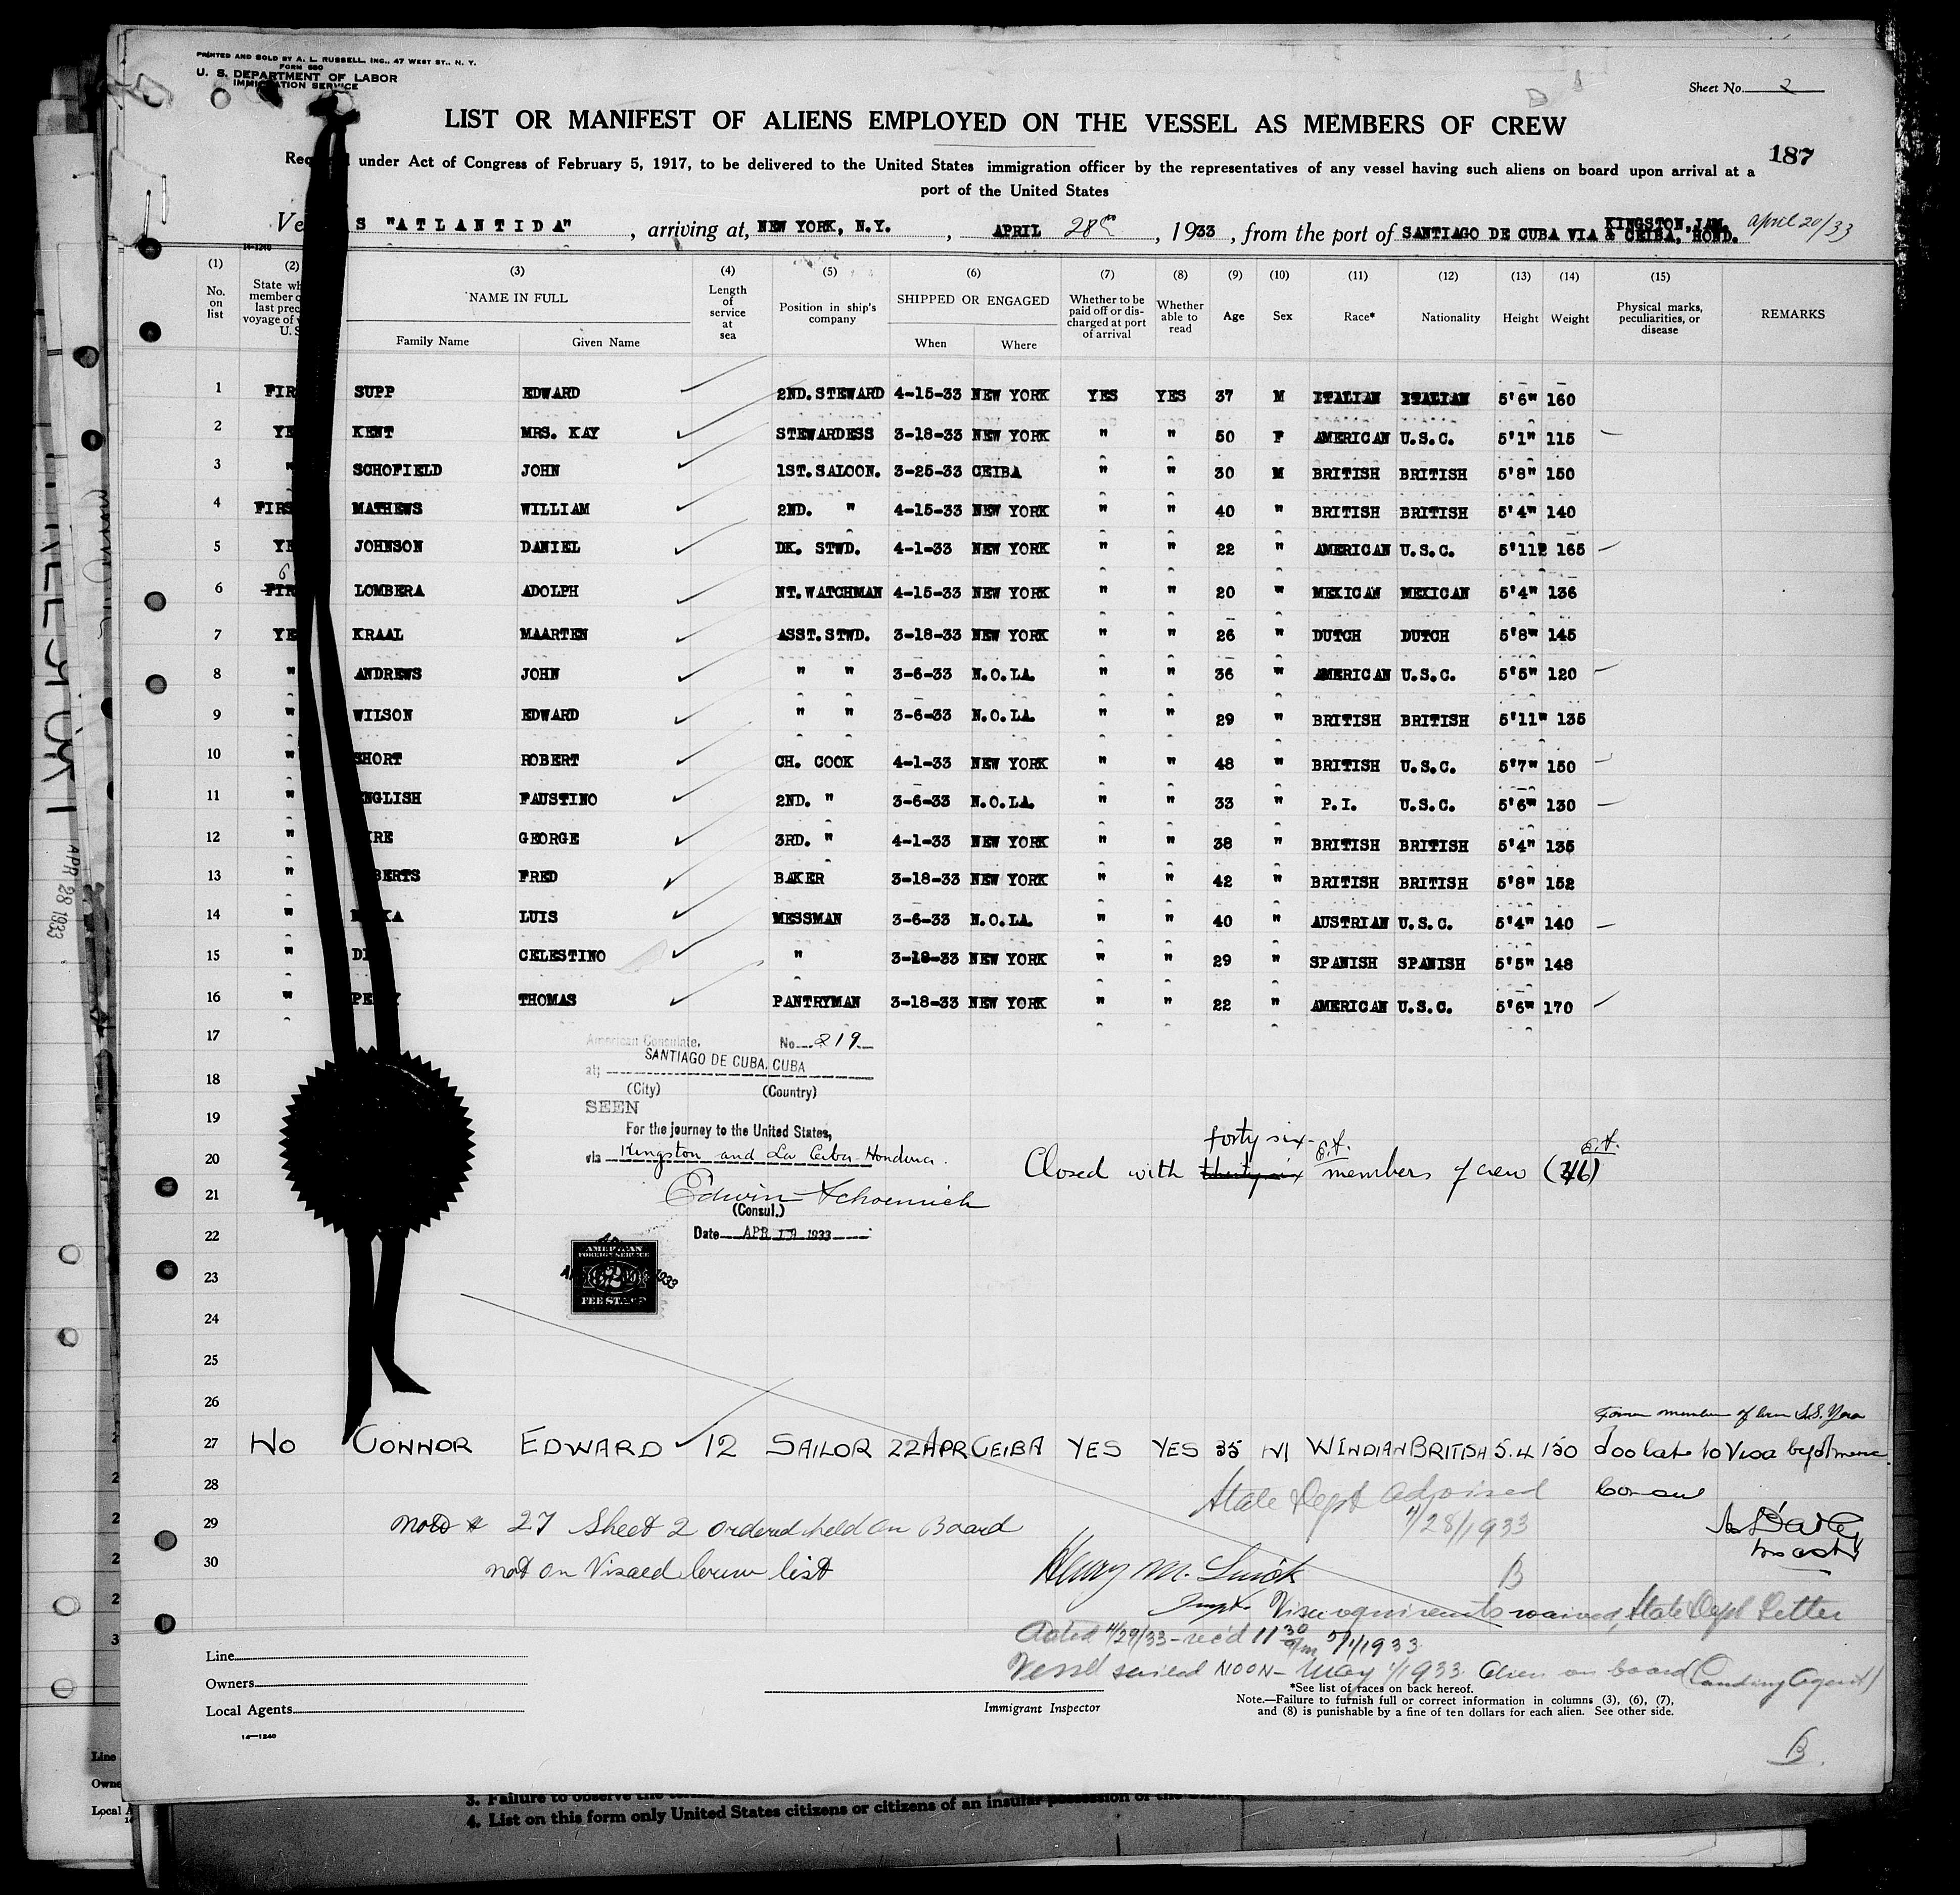 PRINTED AND SOLD BY A. L. RUSSELL, INC., 47 WEST ST., N. Y.
FORM 680
U. S. DEPARTMENT OF LABOR
IMMIGRATION SERVICE
Sheet No. 2
LIST OR MANIFEST OF ALIENS EMPLOYED ON THE VESSEL AS MEMBERS OF CREW
187
under Act of Congress of February 5, 1917, to be delivered to the United States immigration officer by the representatives of any vessel having such aliens on board upon arrival at a
port of the United States
Ve S "ATLANTIDA", arriving at, NEW YORK, N.Y., APRIL 28th, 1933, from the port of SANTIAGO DE CUBA VIA KINGSTON, JAM. & CEIBA, HOND. April 20/33
14-1240
(1) (2) (3) (4) (5) (6) (7) (8) (9) (10) (11) (12) (13) (14) (15)
No. on list State wh member o last prec voyage of U. S. NAME IN FULL Length of service at sea Position in ship's company SHIPPED OR ENGAGED Whether to be paid off or discharged at port of arrival Whether able to read Age Sex Race* Nationality Height Weight Physical marks, peculiarities, or disease REMARKS
Family Name Given Name When Where
1 FIR SUPP EDWARD 2ND. STEWARD 4-15-33 NEW YORK YES YES 37 M ITALIAN ITALIAN 5'6" 160
2 YE KENT MRS. KAY STEWARDESS 3-18-33 NEW YORK " " 50 F AMERICAN U.S.C. 5'1" 115
3 " SCHOFIELD JOHN 1ST. SALOON. 3-25-33 CEIBA " " 30 M BRITISH BRITISH 5'8" 150
4 FIRS MATHEWS WILLIAM 2ND. " 4-15-33 NEW YORK " " 40 " BRITISH BRITISH 5'4" 140
5 YE JOHNSON DANIEL DK. STWD. 4-1-33 NEW YORK " " 22 " AMERICAN U.S.C. 5'11" 165
6 FIR LOMBERA ADOLPH NT. WATCHMAN 4-15-33 NEW YORK " " 20 " MEXICAN MEXICAN 5'4" 136
7 YE KRAAL MAARTEN ASST. STWD. 3-18-33 NEW YORK " " 26 " DUTCH DUTCH 5'8" 145
8 " ANDREWS JOHN " " 3-6-33 N.O.LA. " " 36 " AMERICAN U.S.C. 5'5" 120
9 " WILSON EDWARD " " 3-6-33 N.O.LA. " " 29 " BRITISH BRITISH 5'11" 135
10 " SHORT ROBERT CH. COOK 4-1-33 NEW YORK " " 48 " BRITISH U.S.C. 5'7" 150
11 " NGLISH FAUSTINO 2ND. " 3-6-33 N.O.LA. " " 33 " P.I. U.S.C. 5'6" 130
12 " IRE GEORGE 3RD. " 4-1-33 NEW YORK " " 38 " BRITISH BRITISH 5'4" 135
13 " BERTS FRED BAKER 3-18-33 NEW YORK " " 42 " BRITISH BRITISH 5'8" 152
14 " KA LUIS MESSMAN 3-6-33 N.O.LA. " " 40 " AUSTRIAN U.S.C. 5'4" 140
15 " DI CELESTINO " 3-18-33 NEW YORK " " 29 " SPANISH SPANISH 5'5" 148
16 " PE Y THOMAS PANTRYMAN 3-18-33 NEW YORK " " 22 " AMERICAN U.S.C. 5'6" 170
17
American Consulate, No. 219
18
at; SANTIAGO DE CUBA, CUBA
(City) (Country)
19
SEEN
For the journey to the United States,
20
via Kingston and La Ceiba Honduras.
Closed with thirty six forty six E.S. members of crew (46) E.S.
21
Edwin Schoenrich
(Consul.)
22
Date APR 19 1933
AMERICAN FOREIGN SERVICE
23
$2
FEE STAMP
24
25
26
Former member of crew S.S.
27 No CONNOR EDWARD 12 SAILOR 22 APR CEIBA YES YES 35 M W INDIAN BRITISH 5.4 130 Too late to Visa by
28
State Dept advised
4/28/1933
29
Note # 27 Sheet 2 ordered held on Board
30
not on Visaed crew list
Henry M.
Inspt. Visa requirements waived, State Dept Letter
dated 4/29/33 - rec'd 11 30 am 5/1/1933
Vessel sailed NOON - May 1/1933. Alien on board (Landing Agent)
B
Line
Owners
Local Agents
Immigrant Inspector
*See list of races on back hereof.
Note.—Failure to furnish full or correct information in columns (3), (6), (7),
and (8) is punishable by a fine of ten dollars for each alien. See other side.
14—1240
B
APR 28 1933
3. Failure to observe the
4. List on this form only United States citizens or citizens of an insular possession of the